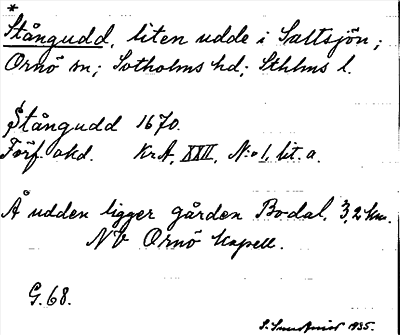 *
Stångudd, liten udde i Saltsjön;
Ornö sn; Sotholms hd; Sthlms l.
Stångudd 1670.
Förf. okd. KrA, XXII, N:o 1, lit. a.
Å udden ligger gården Bodal, 3,2 km.
NV Ornö kapell.
G. 68.
S. 1935.